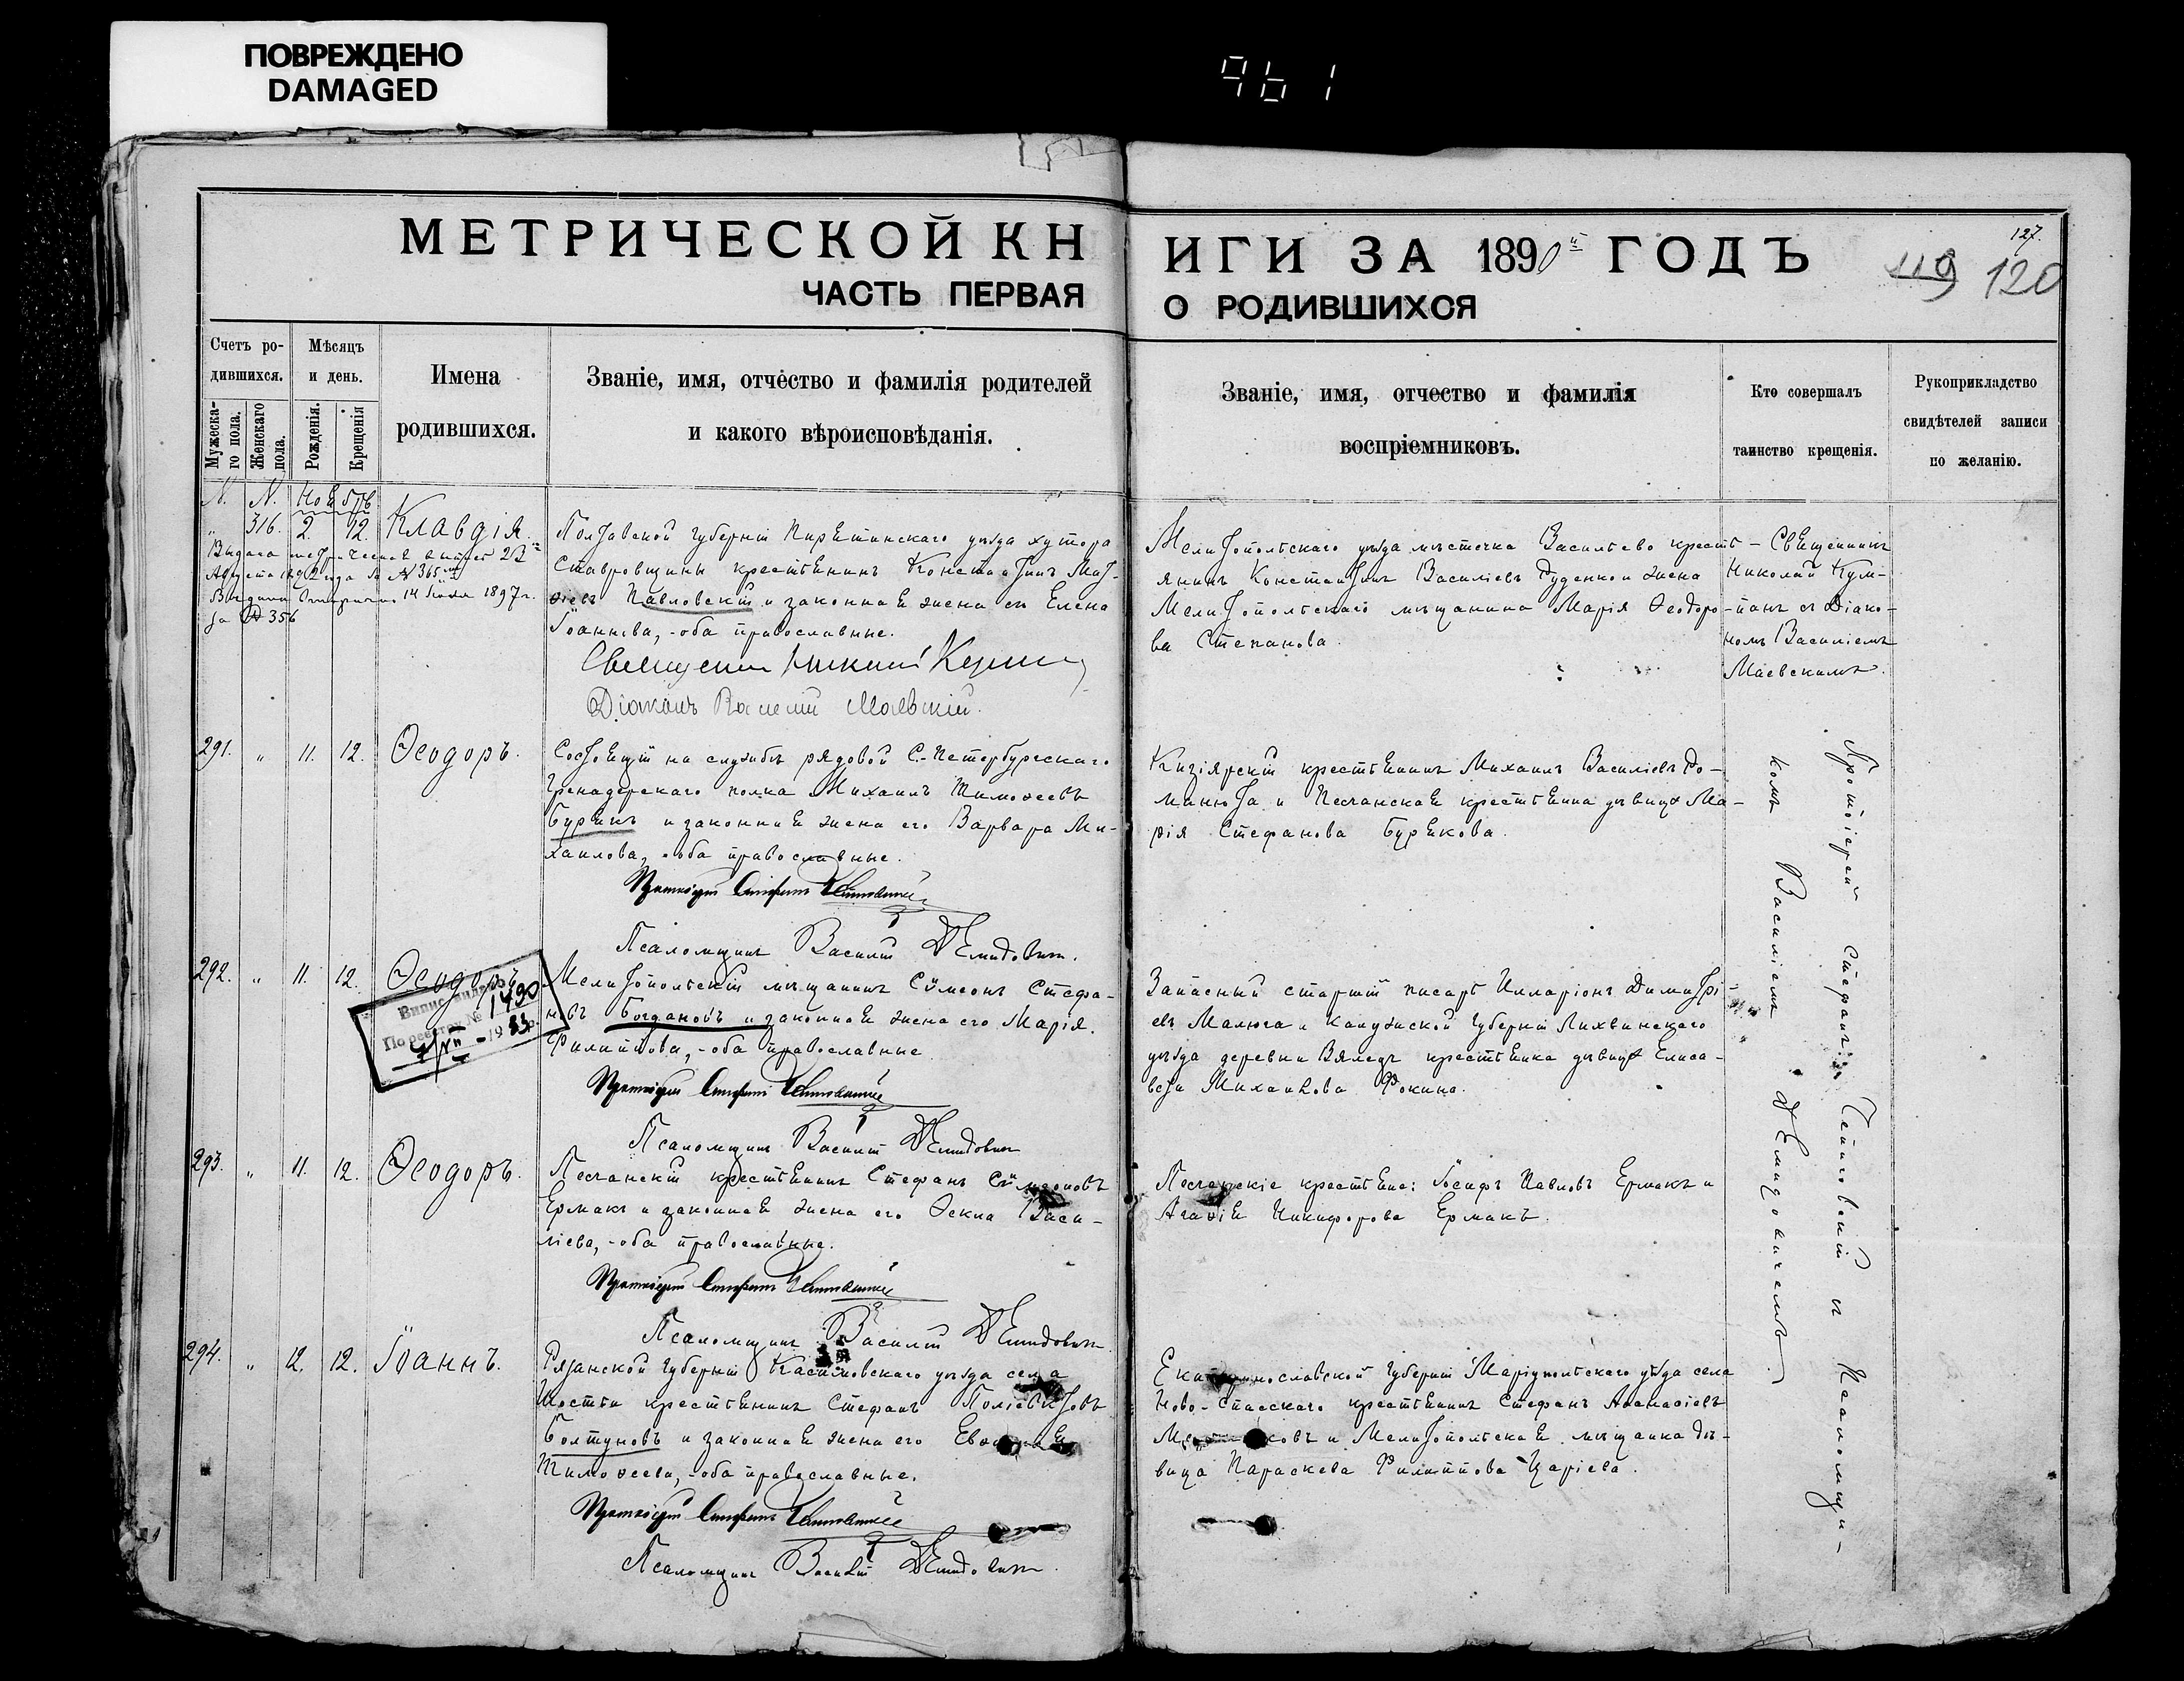 ПОВРЕЖДЕНО
DAMAGED
961
МЕТРИЧЕСКОЙ КНИГИ ЗА 1890й ГОДЪ
127.
119 120
ЧАСТЬ ПЕРВАЯ О РОДИВШИХСЯ
Счетъ ро-
дившихся.
Мужеска-
го пола.
Женскаго
пола.
Мѣсяцъ
и день.
Рожденія.
Крещенія
Имена
родившихся.
Званіе, имя, отчество и фамилія родителей
и какого вѣроисповѣданія.
Званіе, имя, отчество и фамилія
воспріемниковъ.
Кто совершалъ
таинство крещенія.
Рукоприкладство
свидѣтелей записи
по желанію.
N. N. Ноябрь
" 316. 2. 12. Клавдія.
Августа 1892 года за № 365
14 Іюля 1897 г.
за № 356
Полтавской губерніи Пирятинскаго уѣзда хутора
Ставровщины крестьянинъ Константинъ Мат-
ѳіевъ Павловскій и законная жена его Елена
Іоаннова, - оба православные.
Священникъ Николай
Діаконъ Василій Маевскій.
Мелитопольскаго уѣзда мѣстечка Васильево кресть-
янинъ Константинъ Василіевъ Руденко и жена
Мелитопольскаго мѣщанина Марія Ѳеодоро-
ва Степанова.
Священникъ
Николай
съ Діако-
номъ Василіемъ
Маевскимъ.
291. " 11. 12. Ѳеодоръ.
Состоящій на службѣ рядовой С.-Петербургскаго
Гренадерскаго полка Михаилъ Тимоѳеевъ
Бурякъ и законная жена его Варвара Ми-
хаилова, - оба православные.
Протоіерей Стефанъ
Псаломщикъ Василій Демидовичъ.
Кизіярскій крестьянинъ Михаилъ Василіевъ До-
манюта и Песчанская крестьянка дѣвица Ма-
рія Стефанова Бурякова.
292. " 11. 12. Ѳеодоръ.
Випис видано
По реєстру № 1490
19 83 р.
Мелитопольскій мѣщанинъ Сѵмеонъ Стефа-
новъ Богдановъ и законная жена его Марія
Филиппова, - оба православные
Протоіерей Стефанъ
Псаломщикъ Василій Демидовичъ
Запасный старшій писарь Илларіонъ Димитрі-
евъ Малюга и Калужской губерніи Лихвинскаго
уѣзда деревни крестьянка дѣвица Елиса-
вета Михаилова Фокина.
293. " 11. 12. Ѳеодоръ.
Песчанскій крестьянинъ Стефанъ Сѵмеоновъ
Ермакъ и законная жена его Ѳекла Васи-
ліева, - оба православные.
Протоіерей Стефанъ
Псаломщикъ Василій Демидовичъ.
Песчанскіе крестьяне: Іосифъ Павловъ Ермакъ и
Агаѳія Никифорова Ермакъ.
294. " 12. 12. Іоаннъ.
Рязанской губерніи Касимовскаго уѣзда села
Шостьи крестьянинъ Стефанъ Поліевктовъ
Болтуновъ и законная жена его
Тимоѳеева, - оба православные.
Протоіерей Стефанъ
Псаломщикъ Василій Демидовичъ.
Екатеринославской губерніи Маріупольскаго уѣзда села
Ново-Спасскаго крестьянинъ Стефанъ Аѳанасіевъ
и Мелитопольская мѣщанка дѣ-
вица Параскева Филиппова Царіева.
Протоіерей Стефанъ и Псаломщи-
комъ Василіемъ Демидовичемъ.